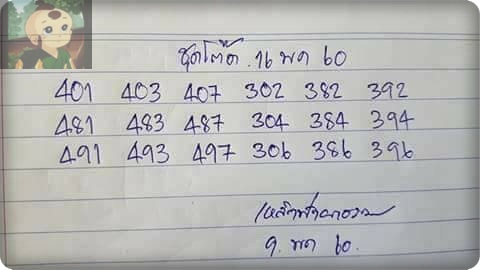 ชุดโต๊ด. 16 พค 60
401 403 407 302 382 392
481 483 487 304 384 394
491 493 497 306 386 396
9. พค 60.